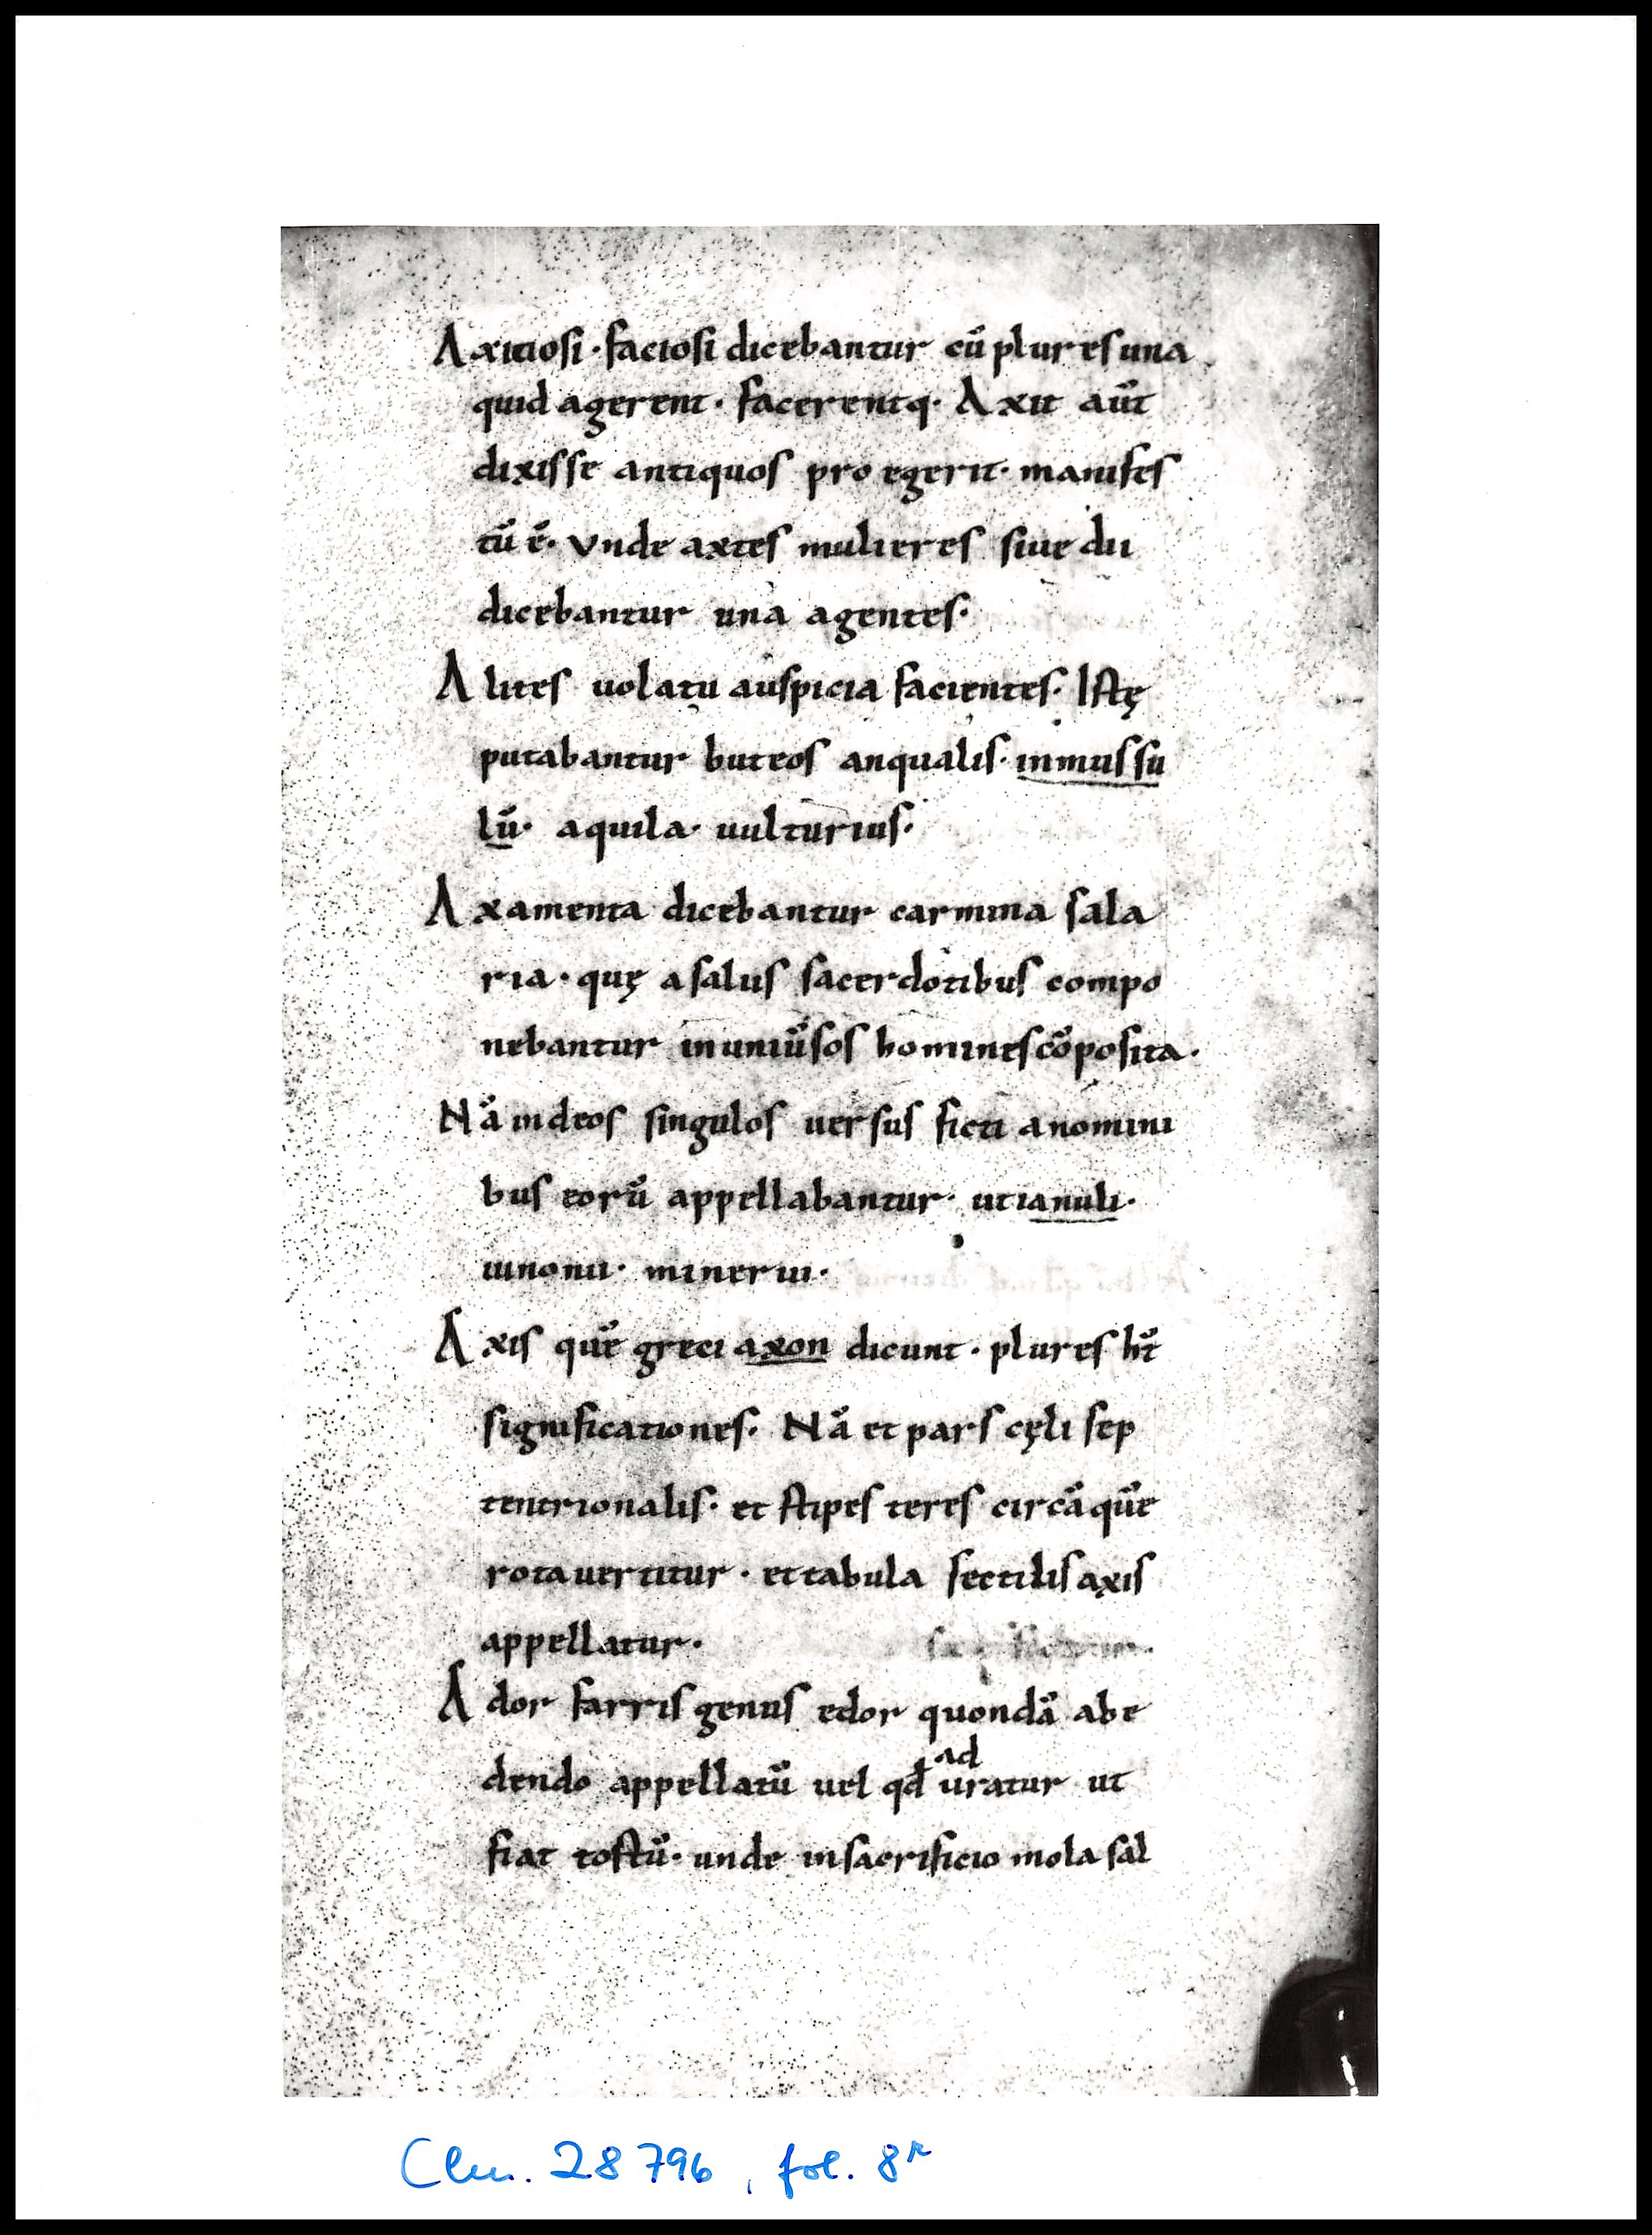 Axitiosi · faciosi dicebantur cu̅ plures una
quid agerent · facerentq · Axit aut̅
dixisse antiquos pro egerit · manifes
tu̅ e̅ · Vnde axtes mulieres siue dii
dicebantur una agentes ·
Alites uolatu auspicia facientes · Istę
putabantur buteos anqualis · inmussu
lu̅ · aquila · uulturius ·
Axamenta dicebantur carmina sala
ria · quę a saliis sacerdotibus compo
nebantur in uniu̅sos homines co̅posita ·
Na̅ in deos singulos uersus ficti a nomini
bus eoru̅ appellabantur · ut ianuli ·
iunonii · mineruii ·
Axis que̅ greci axon dicunt · plures ht̅
significationes · Na̅ et pars cęli sep
tentrionalis · et stipes teres circa̅ que̅
rota uertitur · et tabula sectilis axis
appellatur ·
Ador farris genus edor quonda̅ ab e
dendo appellatu̅ uel qd̅ uratur ut
ad
fiat tostu̅ · unde in sacrificio mola sal
Clm. 28796, fol. 8r